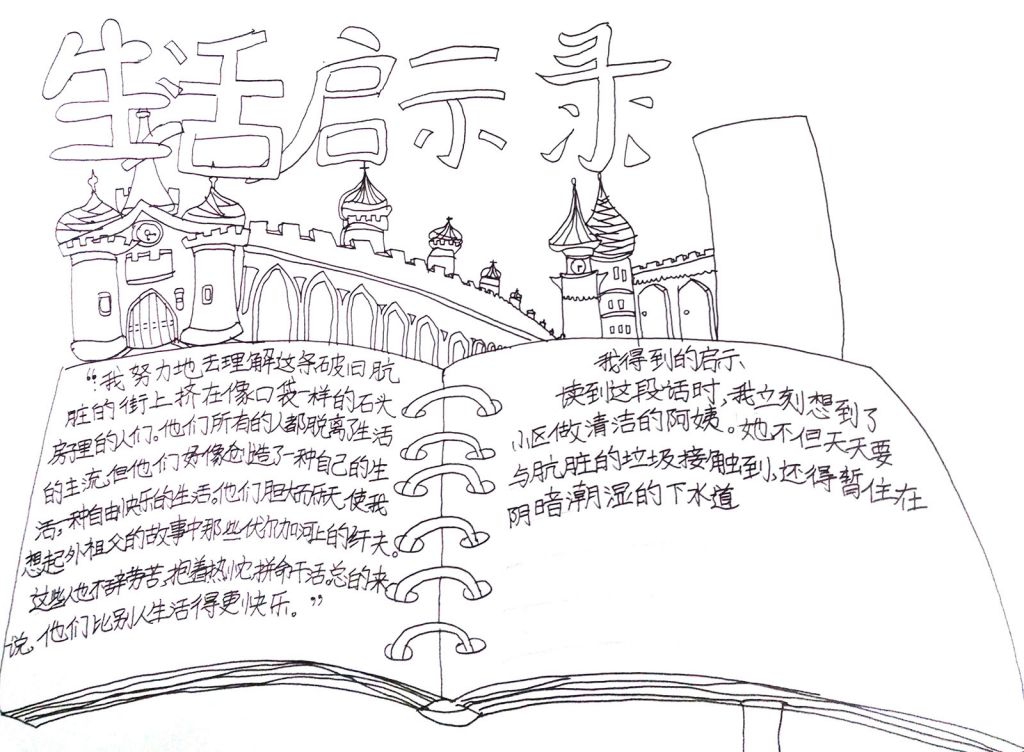 生活启示录
“我努力地去理解这条破旧肮
脏的街上挤在像口袋一样的石头
房里的人们。他们所有的人都脱离了生活
的主流,但他们好像创造了一种自己的生
活,一种自由快乐的生活。他们胆大而乐天,使我
想起外祖父的故事中那些伏尔加河上的纤夫。
这些人也不辞劳苦,抱着热忱,拼命干活。总的来
说,他们比别人生活得更快乐。”
我得到的启示
读到这段话时,我立刻想到了
小区做清洁的阿姨。她不但天天要
与肮脏的垃圾接触到,还得暂住在
阴暗潮湿的下水道